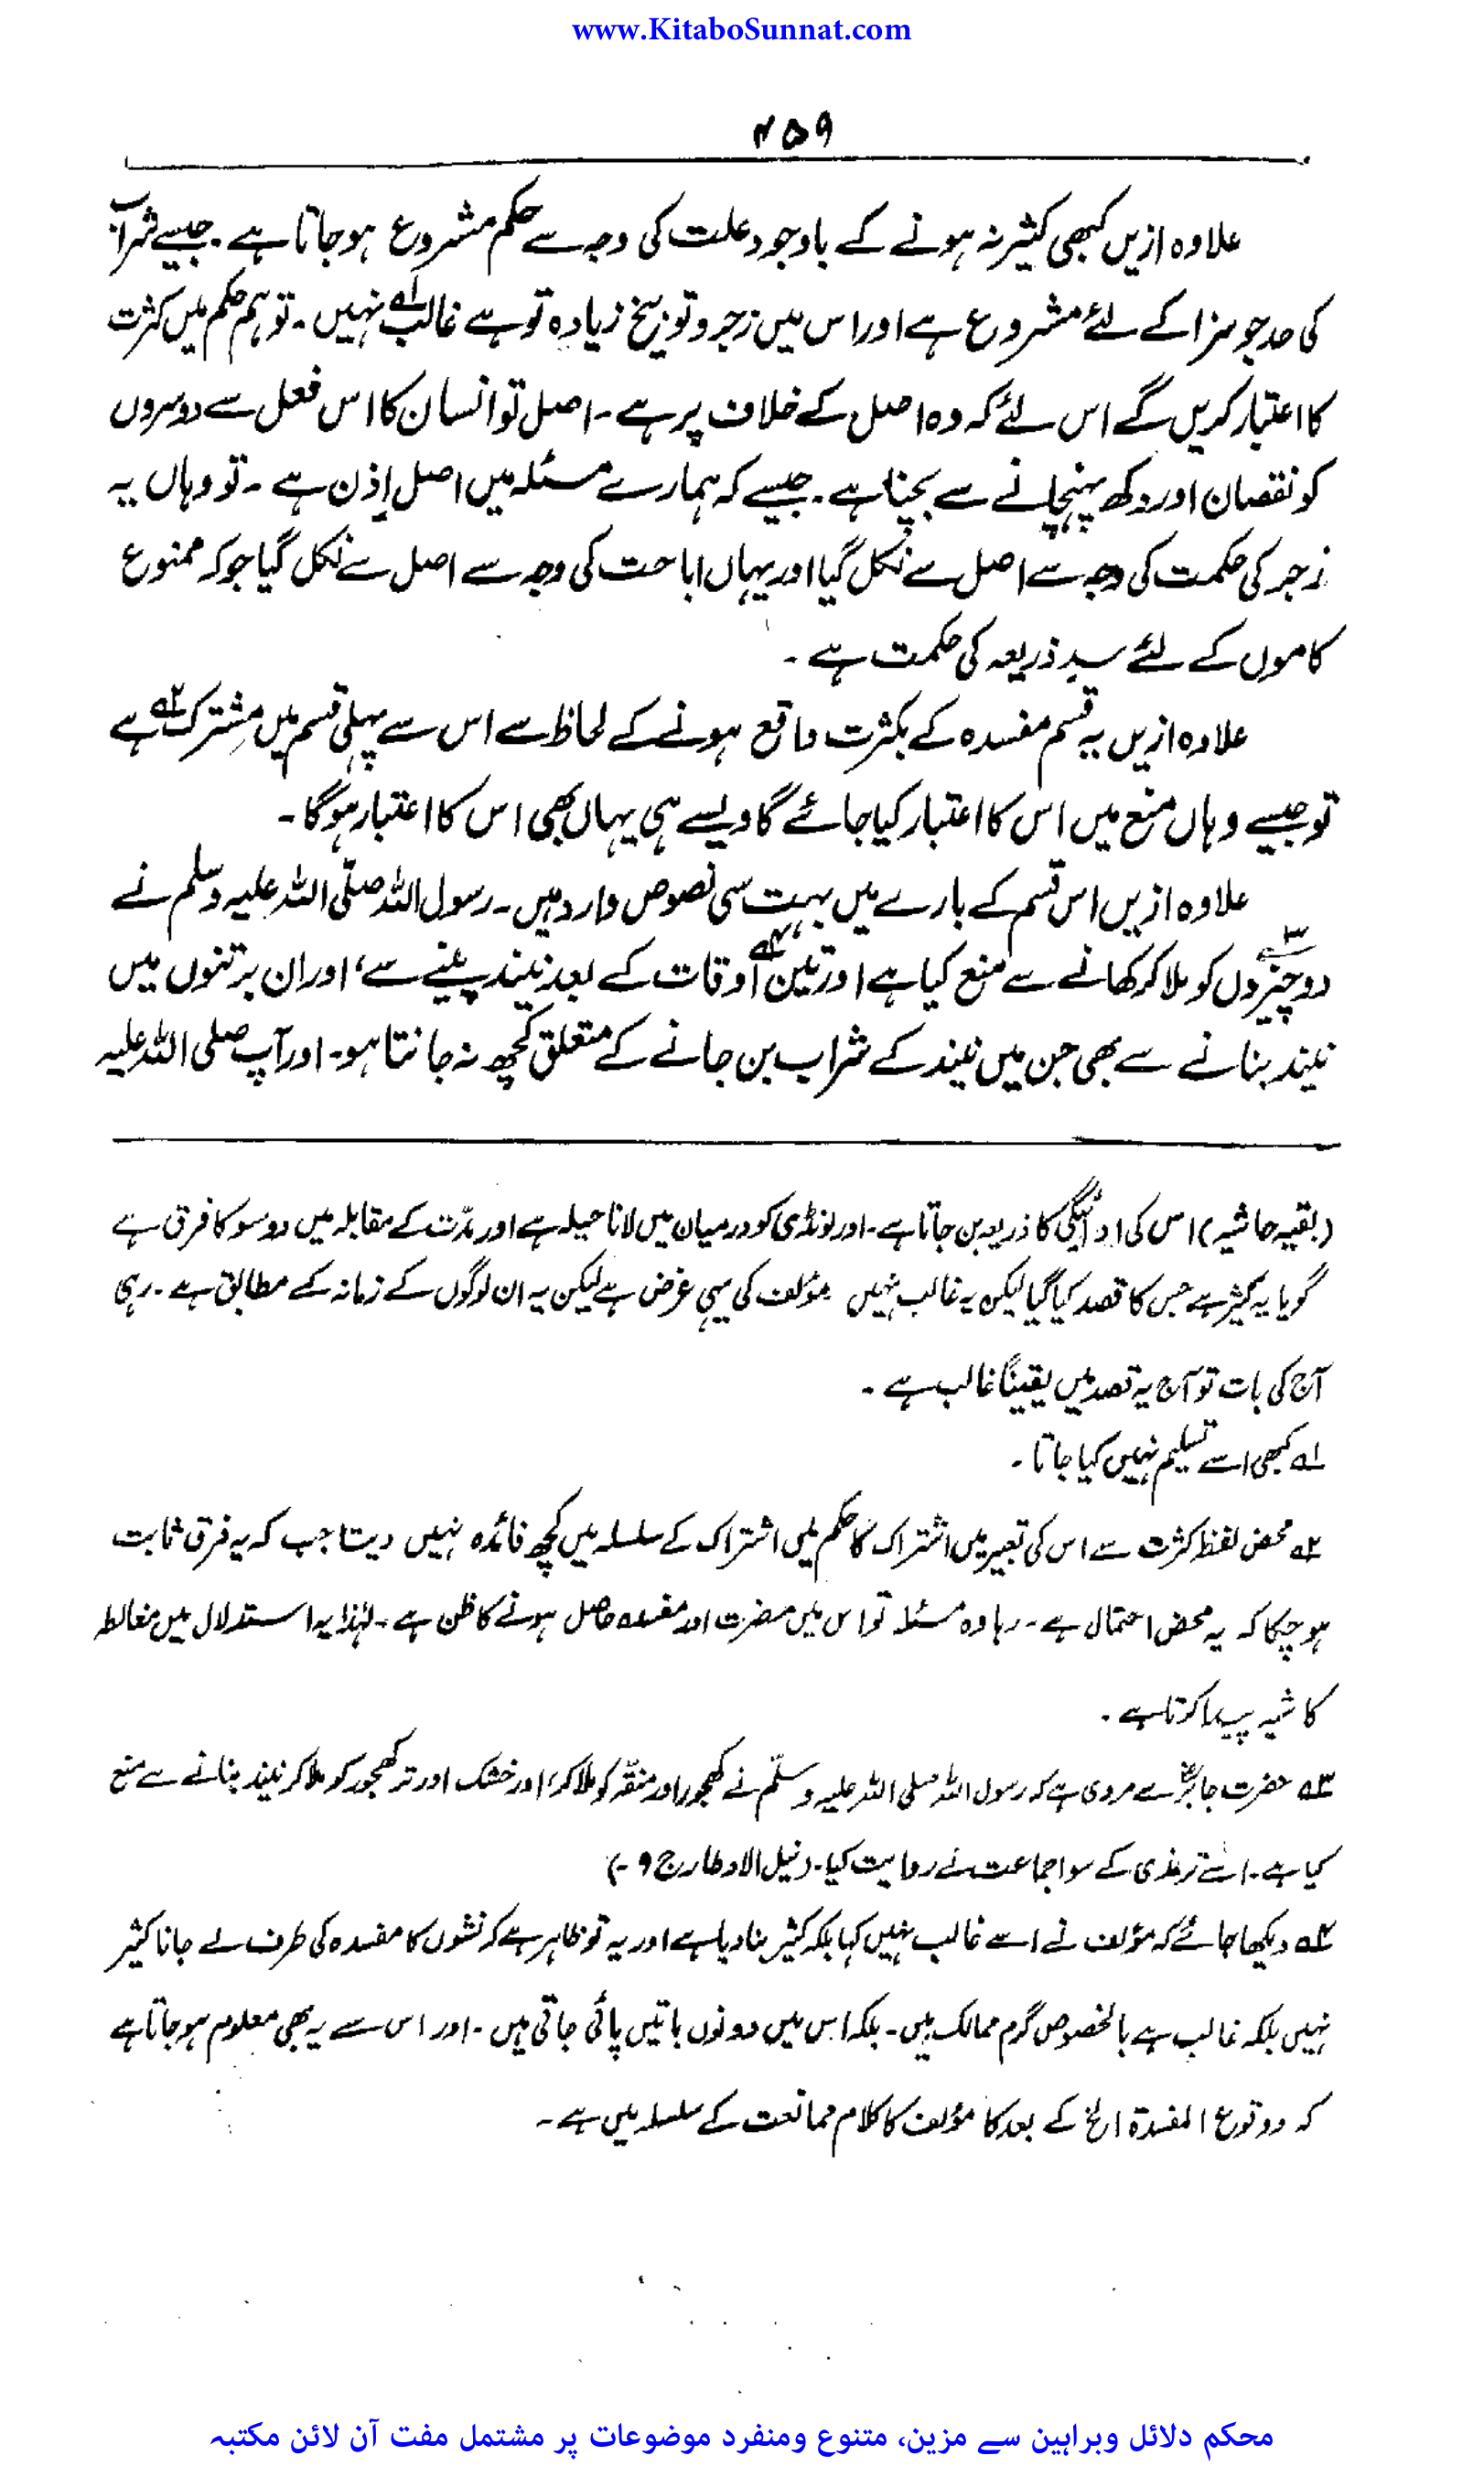 www.KitaboSunnat.com
۴۵۹
علاوہ ازیں کبھی کثیر نہ ہونے کے باوجود علت کی وجہ سے حکم مشروع ہوجاتا ہے۔ جیسے شراب
کی حد جو سزا کے لئے مشروع ہے اور اس میں زجر و توبیخ زیادہ تو ہے غالب۱؎ نہیں۔ تو ہم حکم میں کثرت
کا اعتبار کریں گے اس لئے کہ وہ اصل کے خلاف پر ہے۔ اصل تو انسان کا اس فعل سے دوسروں
کو نقصان اور دکھ پہنچانے سے بچنا ہے۔ جیسے کہ ہمارے مسئلہ میں اصل اِذن ہے۔ تو وہاں یہ
زجر کی حکمت کی وجہ سے اصل سے نکل گیا اور یہاں اباحت کی وجہ سے اصل سے نکل گیا جو کہ ممنوع
کاموں کے لئے سدِ ذریعہ کی حکمت ہے۔
علاوہ ازیں یہ قسم مفسدہ کے بکثرت واقع ہونے کے لحاظ سے اس سے پہلی قسم میں مشترک۲؎ ہے
تو جیسے وہاں منع میں اس کا اعتبار کیا جائے گا ویسے ہی یہاں بھی اس کا اعتبار ہوگا۔
علاوہ ازیں اس قسم کے بارے میں بہت سی نصوص وارد ہیں۔ رسول اللہ صلّی اللہ علیہ وسلم نے
دو چیزوں۳؎ کو ملا کر کھانے سے منع کیا ہے اور تین۴؎ اوقات کے بعد نبیذ پینے سے، اور ان برتنوں میں
نبیذ بنانے سے بھی جن میں نبیذ کے شراب بن جانے کے متعلق کچھ نہ جانتا ہو۔ اور آپ صلی اللہ علیہ
(بقیہ حاشیہ) اس کی ادائیگی کا ذریعہ بن جاتا ہے۔ اور لونڈی کو درمیان میں لانا حیلہ ہے اور مدّت کے مقابلہ میں دو سو کا فرق ہے
گویا یہ کثیر ہے جس کا قصد کیا گیا لیکن یہ غالب نہیں مؤلف کی یہی غرض ہے لیکن یہ ان لوگوں کے زمانہ کے مطابق ہے۔ رہی
آج کی بات تو آج یہ قصد میں یقیناً غالب ہے۔
۱؎ کبھی اسے تسلیم نہیں کیا جاتا۔
۲؎ محض لفظ کثرت سے اس کی تعبیر میں اشتراک کا حکم میں اشتراک کے سلسلہ میں کچھ فائدہ نہیں دیتا جب کہ یہ فرق ثابت
ہوچکا کہ یہ محض احتمال ہے۔ رہا وہ مسئلہ تو اس میں مضرت اور مفسدہ حاصل ہونے کا ظن ہے۔ لہٰذا یہ استدلال میں مغالطہ
کا شبہ پیدا کرتا ہے۔
۳؎ حضرت جابرؓ سے مروی ہے کہ رسول اللہ صلی اللہ علیہ وسلّم نے کھجور اور منقّہ کو ملا کر، اور خشک اور تر کھجور کو ملا کر نبیذ بنانے سے منع
کیا ہے۔ اسے ترمذی کے سوا جماعت نے روایت کیا۔ (نیل الاوطار ج ۹۔)
۴؎ دیکھا جائے کہ مؤلف نے اسے غالب نہیں کہا بلکہ کثیر بنا دیا ہے اور یہ تو ظاہر ہے کہ نشوں کا مفسدہ کی طرف لے جانا کثیر
نہیں بلکہ غالب ہے بالخصوص گرم ممالک میں۔ بلکہ اس میں دونوں باتیں پائی جاتی ہیں۔ اور اس سے یہ بھی معلوم ہوجاتا ہے
کہ ‏”وقوع المفسدۃ الخ کے بعد کا مؤلف کا کلام ممانعت کے سلسلہ میں ہے۔
محکم دلائل وبراہین سے مزین، متنوع ومنفرد موضوعات پر مشتمل مفت آن لائن مکتبہ